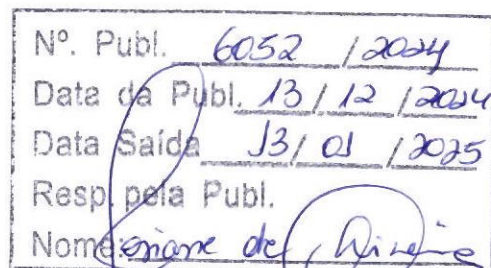 Nº. Publ. 6052 / 2024
Data da Publ. 13 / 12 / 2024
Data Saída 13 / 01 / 2025
Resp. pela Publ.
Nome: de